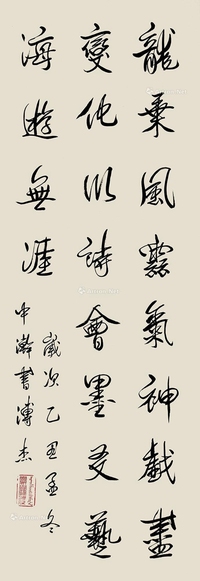 龍乗風雲氣神戲畫
變化以詩會墨文藝
海遊無涯
歲次乙丑孟冬
中濬書溥杰